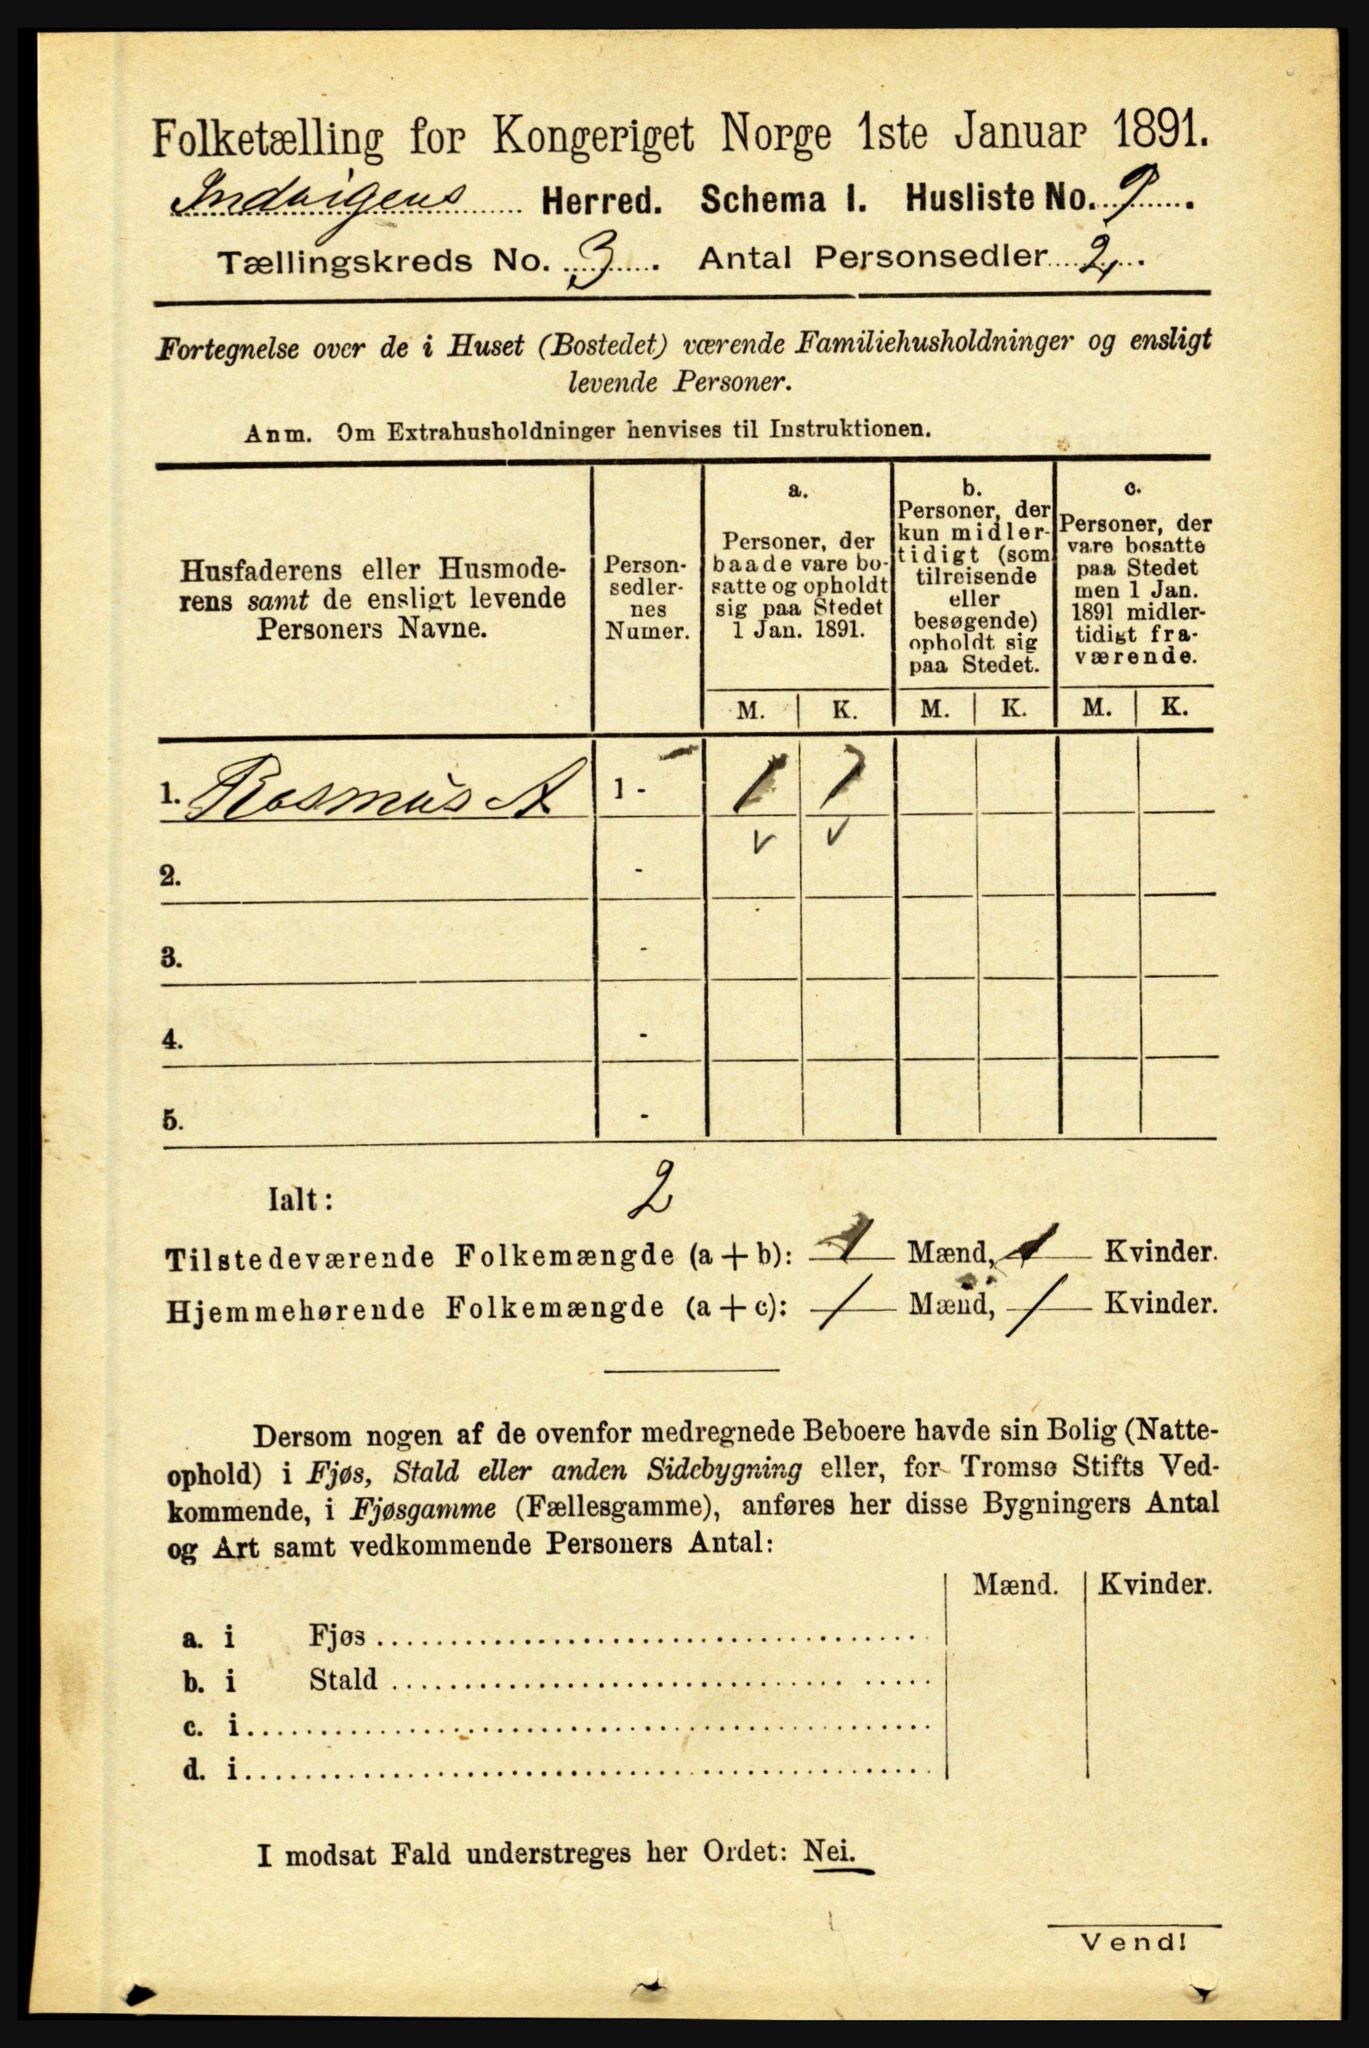 Folketælling for Kongeriget Norge 1ste Januar 1891.
Indvigens Herred. Schema I. Husliste No. 9.
Tællingskreds No. 3. Antal Personsedler 2.
Fortegnelse over de i Huset (Bostedet) værende Familiehusholdninger og ensligt
levende Personer.
Anm. Om Extrahusholdninger henvises til Instruktionen.
Husfaderens eller Husmode-
rens samt de ensligt levende
Personers Navne.
Person-
sedler-
nes
Numer.
a.
Personer, der
baade vare bo-
satte og opholdt
sig paa Stedet
1 Jan. 1891.
b.
Personer, der
kun midler-
tidigt (som
tilreisende
eller
besøgende)
opholdt sig
paa Stedet.
c.
Personer, der
vare bosatte
paa Stedet
men 1 Jan.
1891 midler-
tidigt fra-
værende.
M. K. M. K. M. K.
1. Rasmus A 1 - 1 1
2. -
3. -
4. -
5. -
Ialt: 2
Tilstedeværende Folkemængde (a + b): 1 Mænd, 1 Kvinder.
Hjemmehørende Folkemængde (a + c): 1 Mænd, 1 Kvinder.
Dersom nogen af de ovenfor medregnede Beboere havde sin Bolig (Natte-
ophold) i Fjøs, Stald eller anden Sidebygning eller, for Tromsø Stifts Ved-
kommende, i Fjøsgamme (Fællesgamme), anføres her disse Bygningers Antal
og Art samt vedkommende Personers Antal:
Mænd. Kvinder.
a. i Fjøs
b. i Stald
c. i
d. i
I modsat Fald understreges her Ordet: Nei.
Vend!